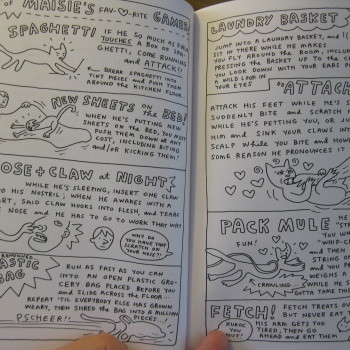 OF MAISIE'S FAV♥RITE GAMES
SPAGHETTI!
IF HE SO MUCH AS EVEN
TOUCHES A BOX OF SPA-
GHETTI, COME RUNNING
AND ATTACK!
BREAK SPAGHETTI INTO
TINY PIECES AND PUSH THEM
AROUND THE KITCHEN FLOOR.
NEW SHEETS ON THE BED!
WHEN HE'S PUTTING NEW
SHEETS ON THE BED, YOU MUST
PUSH THEM DOWN AT ANY
COST, INCLUDING BITING
and/or KICKING THEM!
OSE + CLAW AT NIGHT
WHILE HE'S SLEEPING, INSERT ONE CLAW
TO HIS NOSTRIL; WHEN HE AWAKES WITH A
ART, SAID CLAW HOOKS INTO FLESH, AND TEARS
NOSE AND HE HAS TO GO TO WORK THAT WAY
WHY DO
YOU HAVE THAT
SCRATCH ON
YOUR NOSE?!
ASTIC
BAG
RUN AS FAST AS YOU CAN
INTO AN OPEN PLASTIC GRO-
CERY BAG PLACED BEFORE YOU
AND SLIDE ACROSS THE FLOOR...
REPEAT 'TIL EVERYBODY ELSE HAS GROWN
WEARY, THEN SHRED THE BAG INTO A MILLION
PIECES!
PSCHEER!!
LAUNDRY BASKET
JUMP INTO A LAUNDRY BASKET, AND
SIT IN THERE WHILE HE MAKES
YOU FLY AROUND THE ROOM, INCLU
PRESSING THE BASKET UP TO THE C
YOU LOOK DOWN WITH YOUR EARS P
A WILD LOOK IN
YOUR EYES
"ATTACK
ATTACK HIS FEET WHILE HE'S
SUDDENLY BITE AND SCRATCH H
WHILE HE'S PETTING YOU, OR JU
HIM and SINK YOUR CLAWS INTO
SCALP WHILE YOU BITE and HOW
SOME REASON HE PRONOUNCES IT
PACK MULE
FUN!
HE
"ST
YOU
WHIP-
and THEN
STRING
AND YOU P
WEIGHS A
CRAWLING
WHILE HE
GOTTA TAKE TH
FETCH!
FETCH TREATS OU
BUT NEVER EAT
HIS ARM GETS TOO
TIRED, THEN GO
AHEAD and EAT THEM
KURGE
YOU
NUT!